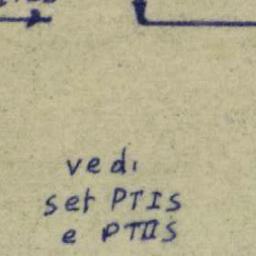 vedi
set PTIS
e PTIIS